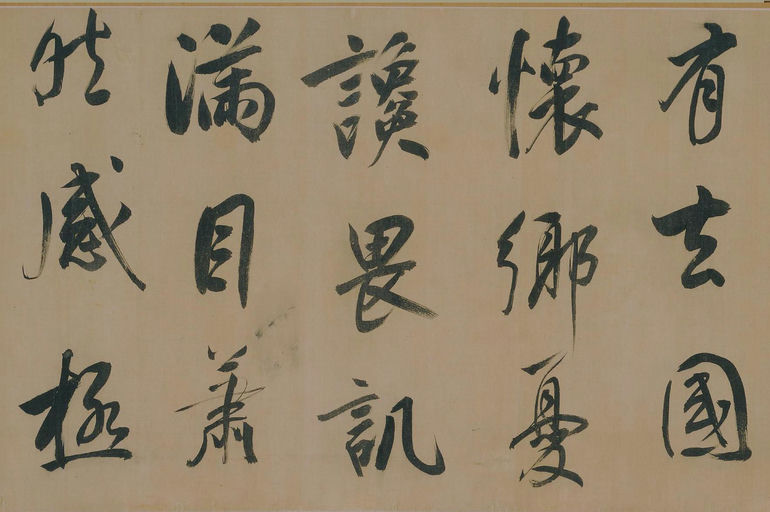 有去國
懷鄉憂
讒畏譏
滿目蕭
然感極